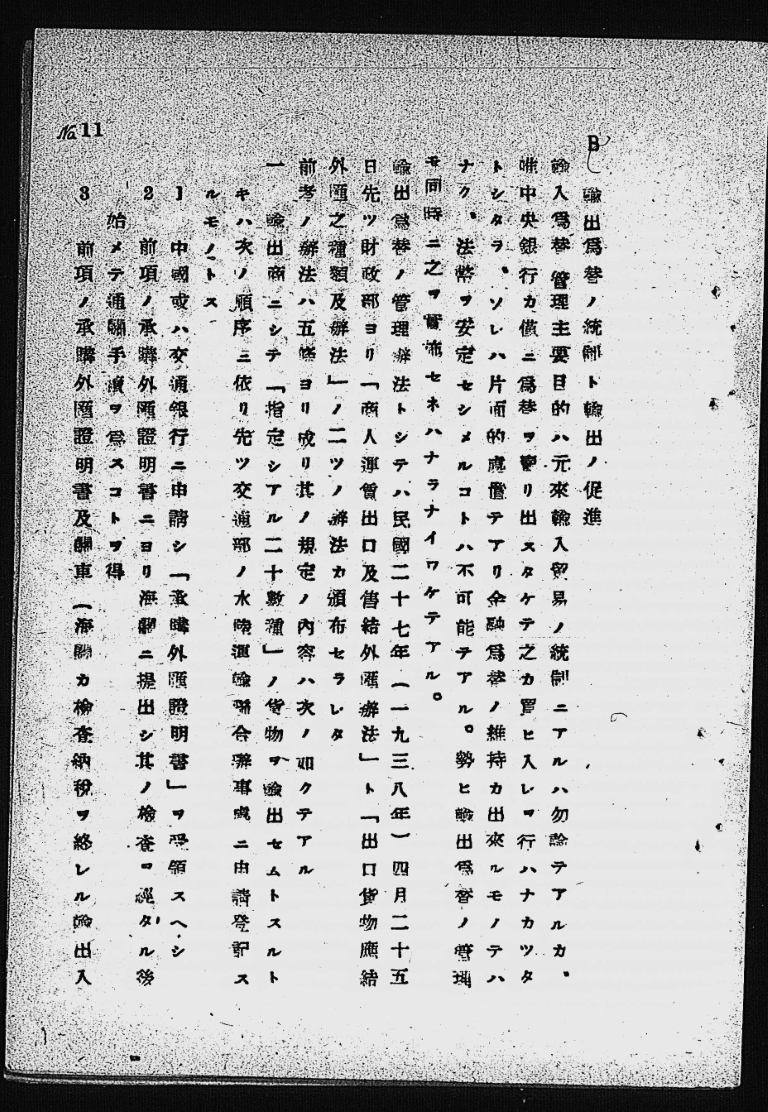 No. 11
B 輸出爲替ノ統制ト輸出ノ促進
輸入爲替管理主要目的ハ元來輸入貿易ノ統制ニアルハ勿論テアルカ、
唯中央銀行カ債ニ爲替ヲ賣リ出スタケテ之カ買ヒ入レヲ行ハナカツタ
トシタラ、ソレハ片面的處置テアリ金融爲替ノ維持カ出來ルモノテハ
ナク、法幣ヲ安定セシメルコトハ不可能テアル。勢ヒ輸出爲替ノ管理
モ同時ニ之ヲ實施セネハナラナイワケテアル。
輸出爲替ノ管理辦法トシテハ民國二十七年(一九三八年)四月二十五
日先ツ財政部ヨリ「商人運貨出口及售結外匯辦法」ト「出口貨物應結
外匯之種類及辦法」ノ二ツノ辦法カ頒布セラレタ
前者ノ辦法ハ五條ヨリ成リ其ノ規定ノ内容ハ次ノ如クテアル
一 輸出商ニシテ「指定シアル二十數種」ノ貨物ヲ輸出セムトスルト
キハ次ノ順序ニ依リ先ツ交通部ノ水陸運輸聯合辦事處ニ申請登記ス
ルモノトス
1 中國或ハ交通銀行ニ申請シ「承購外匯證明書」ヲ受領スヘシ
2 前項ノ承購外匯證明書ニヨリ海關ニ提出シ其ノ檢査ヲ經タル後
始メテ通關手續ヲ爲スコトヲ得
3 前項ノ承購外匯證明書及關車(海關カ檢査納稅ヲ終レル輸出入